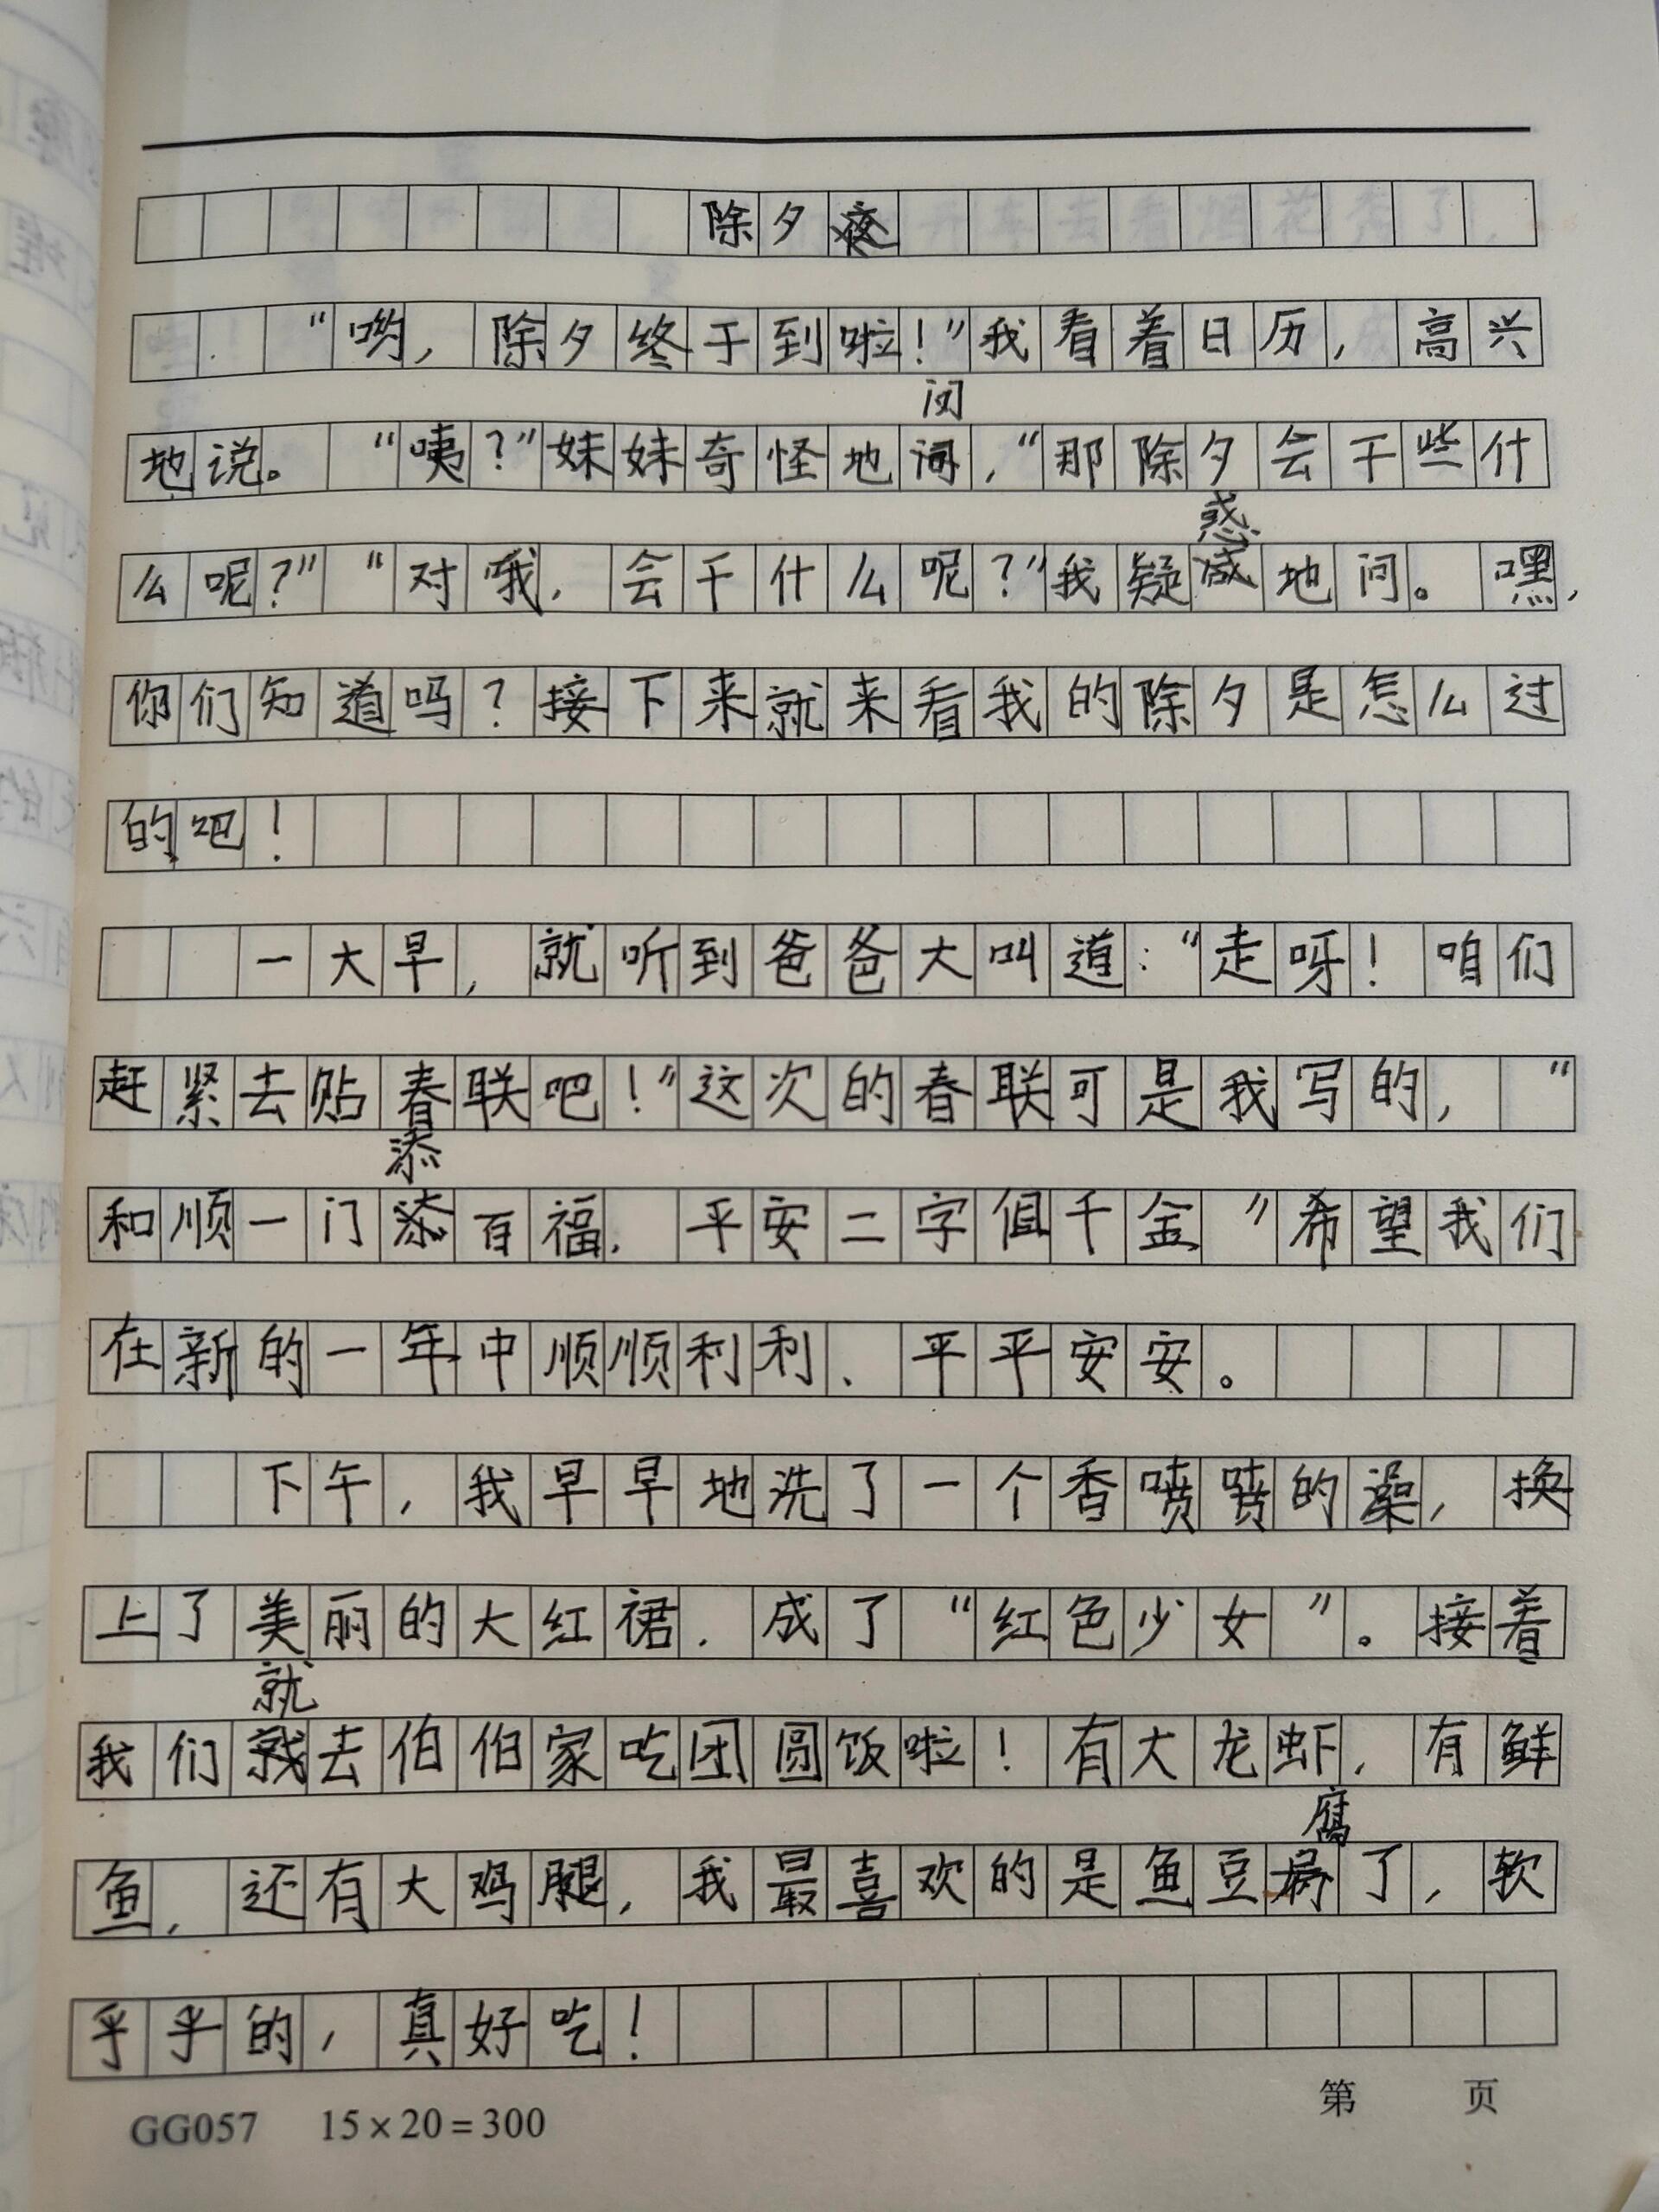 除夕
“哟，除夕终于到啦！”我看着日历，高兴
问
地说。“咦？”妹妹奇怪地问，“那除夕会干些什
惑
么呢？”“对哦，会干什么呢？”我疑惑地问。嘿，
你们知道吗？接下来就来看我的除夕是怎么过
的吧！
一大早，就听到爸爸大叫道：“走呀！咱们
赶紧去贴春联吧！”这次的春联可是我写的，”
添
和顺一门添百福，平安二字值千金”希望我们
在新的一年中顺顺利利、平平安安。
下午，我早早地洗了一个香喷喷的澡，换
上了美丽的大红裙，成了“红色少女”。接着
就
我们就去伯伯家吃团圆饭啦！有大龙虾，有鲜
腐
鱼，还有大鸡腿，我最喜欢的是鱼豆腐了，软
乎乎的，真好吃！
GG057 15×20=300
第 页